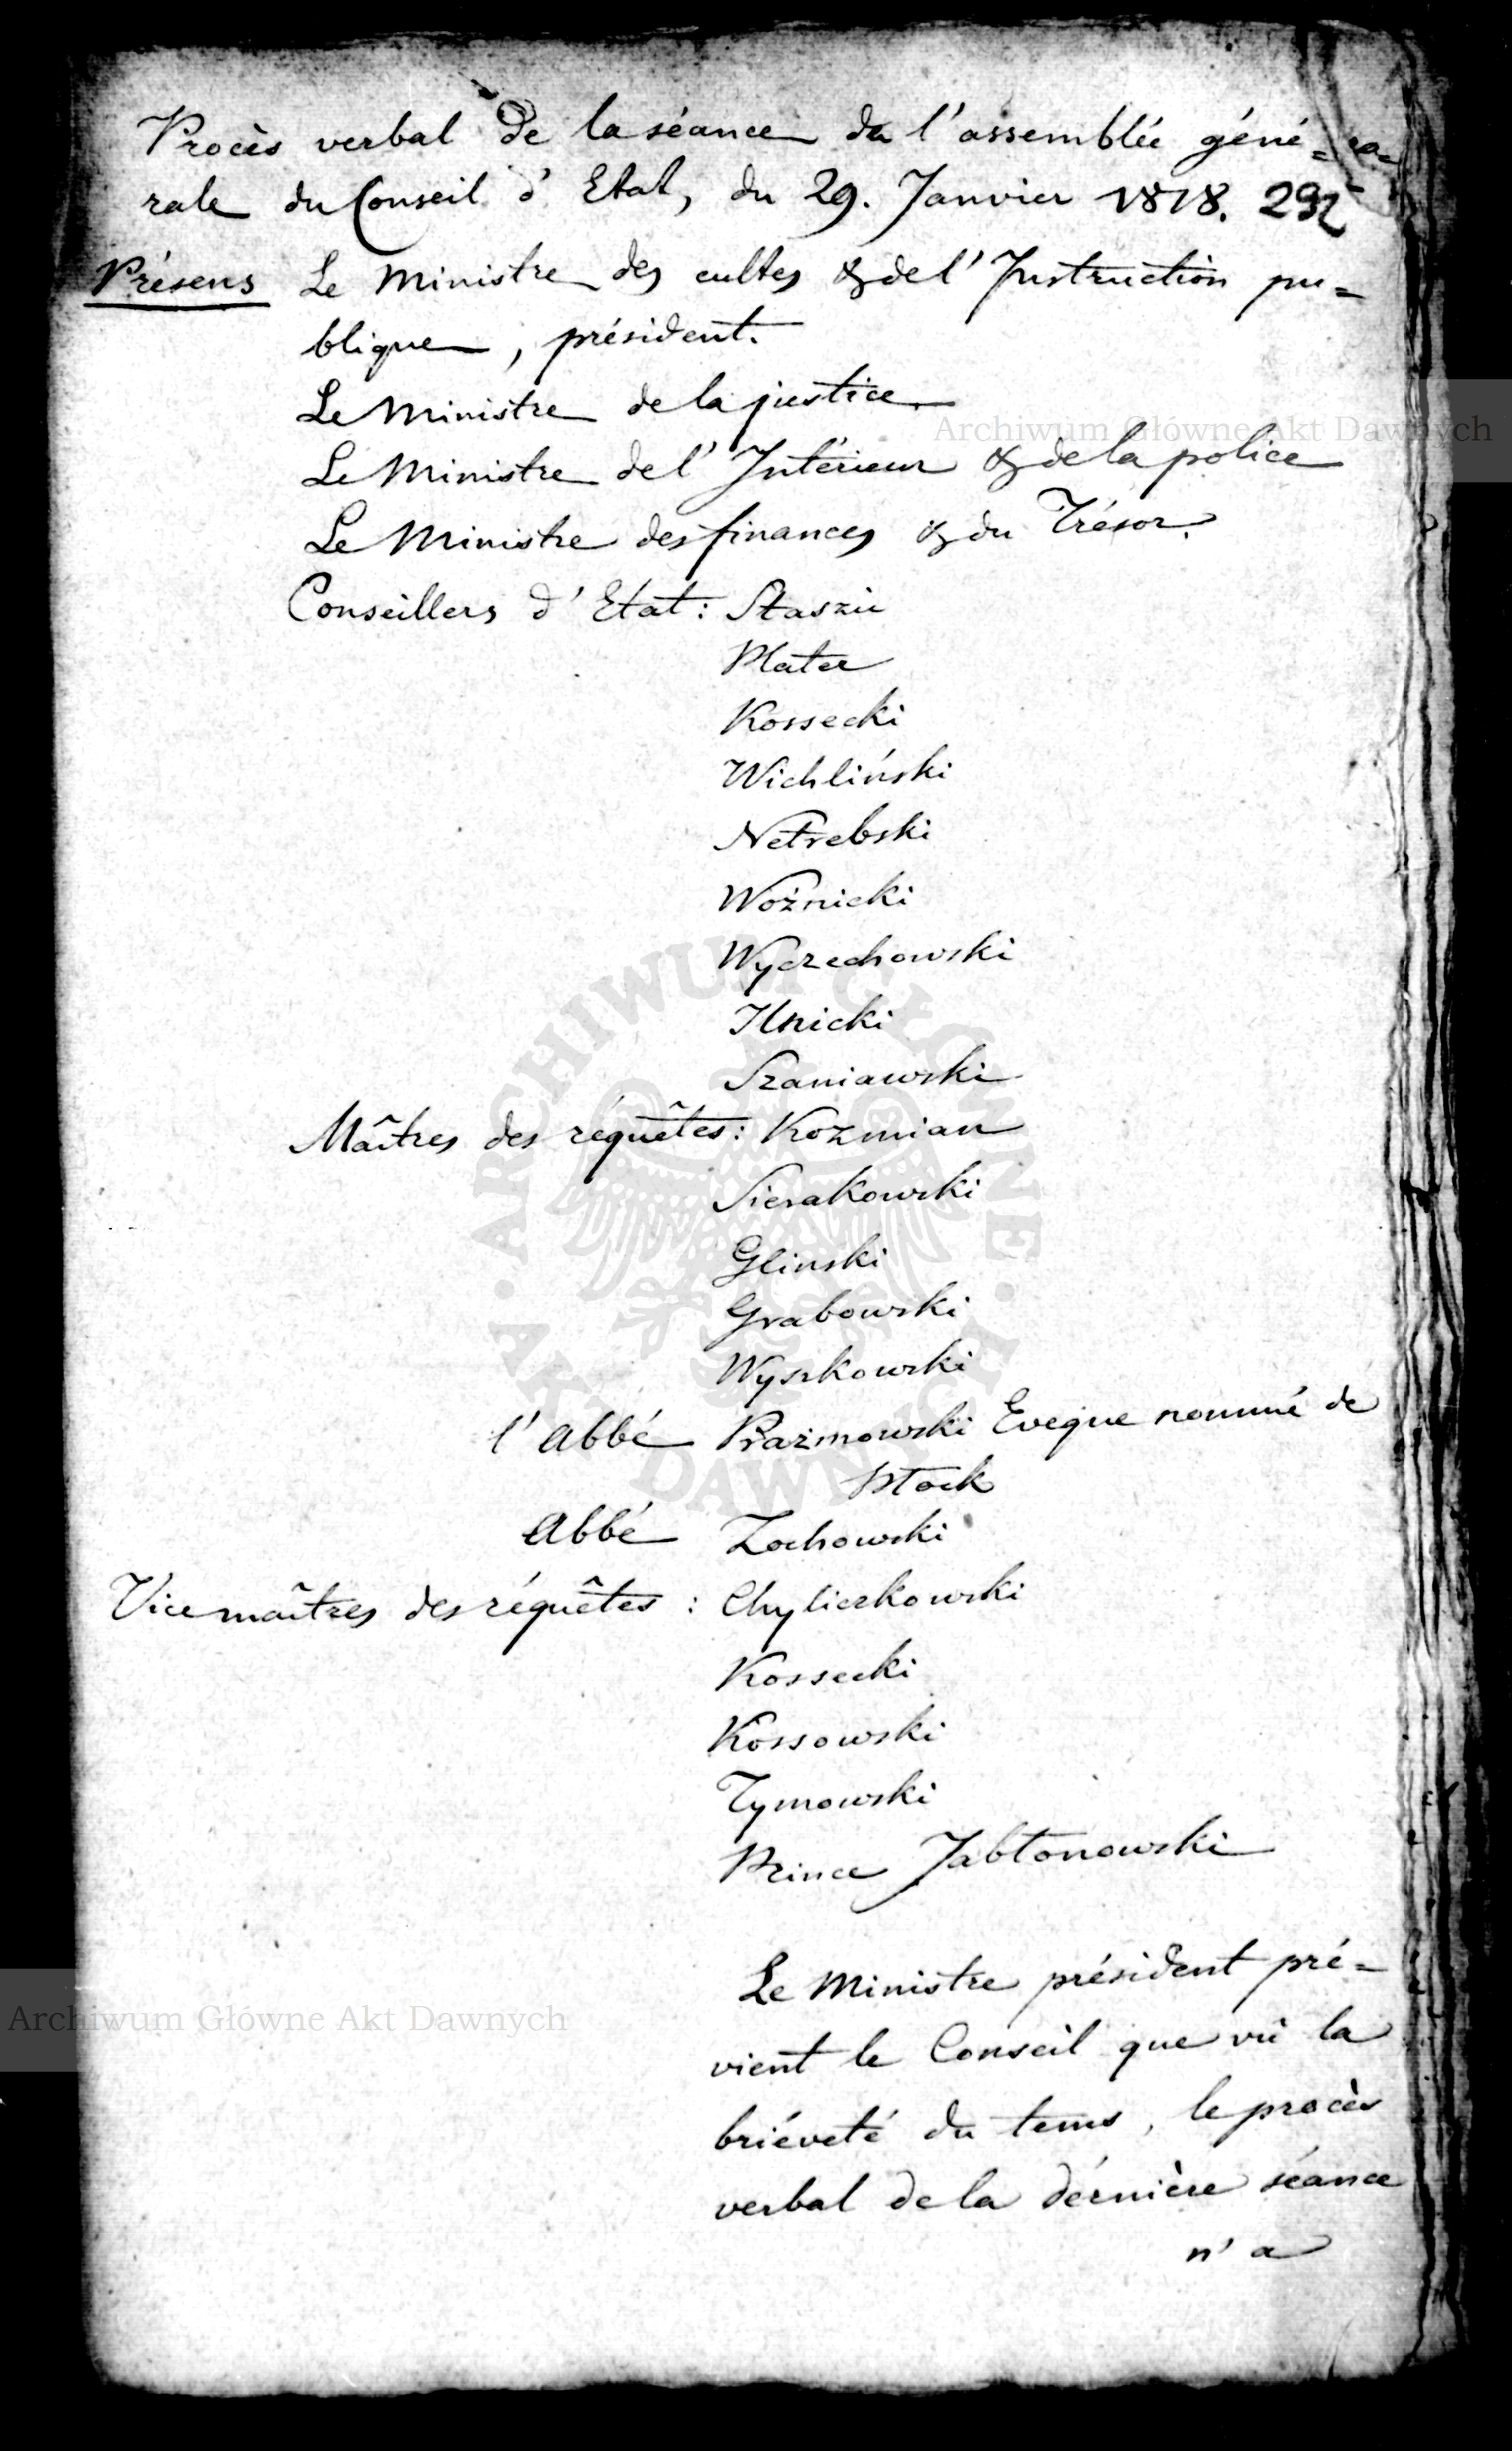 Procès verbal de la séance de l'assemblée géné=
rale du Conseil d'Etat, du 29. Janvier 1818. 292
Présens Le Ministre des cultes & de l'Instruction pu=
blique, président.
Le Ministre de la justice
Archiwum Główne Akt Dawnych
Le Ministre de l'Intérieur & de la police
Le Ministre des finances & du Trésor.
Conseillers d'Etat: Staszic
Plater
Kossecki
Wichliński
Netrebski
Woźnicki
Wyczechowski
Ilnicki
Szaniawski
Maîtres des réquêtes: Kozmian
Sierakowski
Glinski
Grabowski
Wyszkowski
l'abbé Prażmowski Eveque nommé de
Płock
Abbé Zochowski
Vice maîtres des réquêtes: Chyliczkowski
Kossecki
Kossowski
Tymowski
Prince Jabłonowski
Le Ministre président pré=
Archiwum Główne Akt Dawnych
vient le Conseil que vû la
briéveté du tems, le procès
verbal de la dérnière séance
n'a
ARCHIWUM GŁÓWNE AKT DAWNYCH